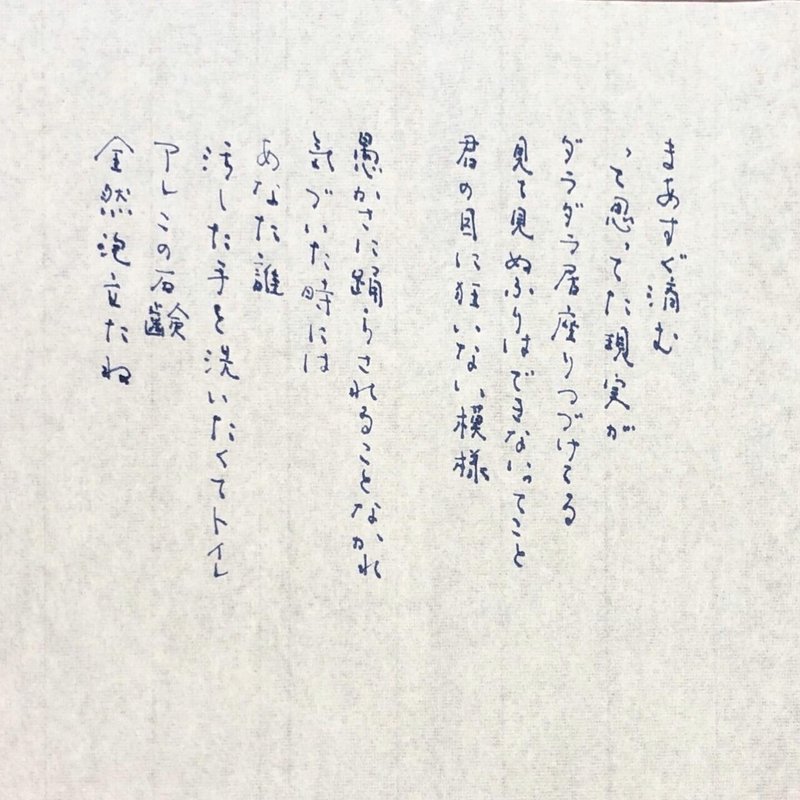 まあすぐ済む
って思ってた現実が
ダラダラ居座りつづけてる
見て見ぬふりはできないってこと
君の目に狂いない模様
愚かさに踊らされることなかれ
気づいた時には
あなた誰
汚した手を洗いたくてトイレ
アレこの石鹸
全然泡立たね